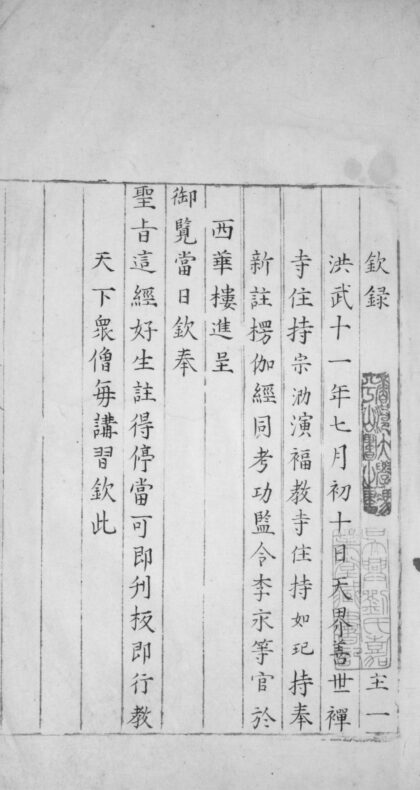 欽录
洪武十一年七月初十日天界善世禪
寺住持宗泐演福教寺住持如玘持奉
新註楞伽經同考功監令李永等官於
西華樓進呈
御覽當日欽奉
聖旨這經好生註得停當可即刋板即行教
天下衆僧每講習欽此